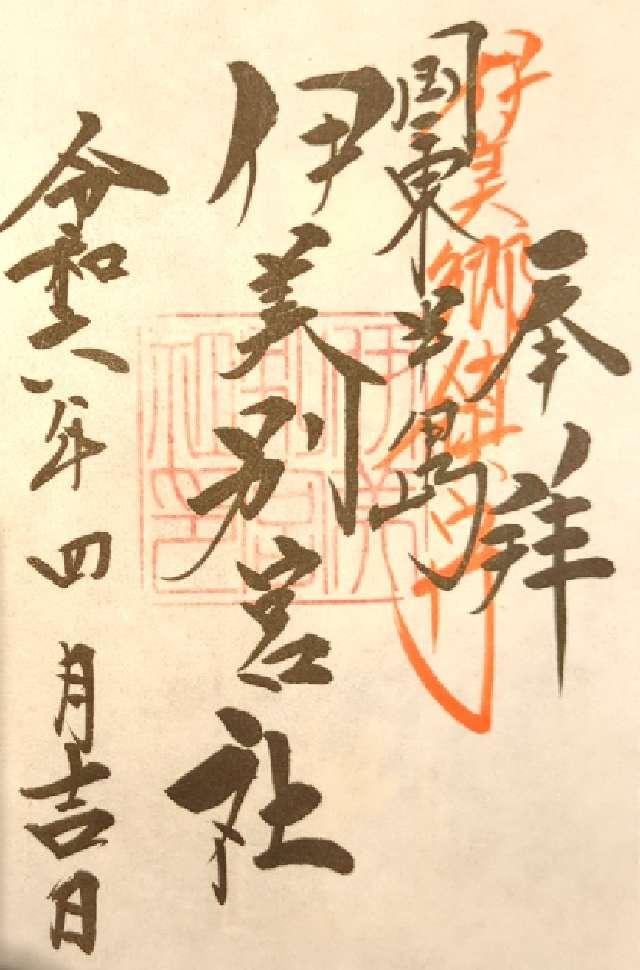 奉拝
国東半島
伊美別宮社
令和六年四月吉日